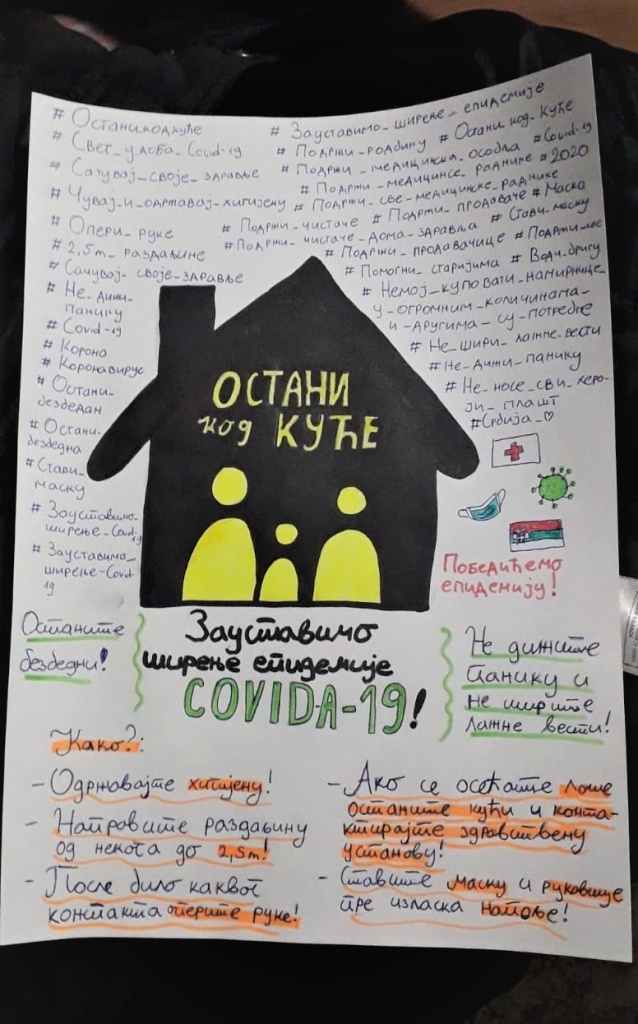 # Остани_код_куће
# Свет_у_доба_Covid-19
# Сачувај_своје_здравље
# Чувај_и_одржавај_хигијену
# Опери_руке
# 2,5m_раздаљине
# Сачувај_своје_здравље
# Не_дижи_
панику
# Covid-19
# Корона
# Коронавирус
# Остани-
безбедан
# Остани-
безбедна
# Стави-
маску
# Зауставимо-
ширење-Covid-
19
# Зауставимо_
ширење-Covid-
19
# Зауставимо_ширење_епидемије
# Подржи_родбину # Остани_код_куће
# Подржи_медицинска_особља #Covid-19
# Подржи_медицинсе_раднике #2020
# Подржи_све_медицинске_раднике
# Подржи_чистаче # Подржи_продаваче # Маска
#Подржи_чистаче_дома_здравља # Стави_маску
# Подржи_продавачице # Подржи_све
# Помогни_старијима # Води_бригу
# Немој_куповати_намирнице_
у_огромним_количинама_
и_другима_су_потребне
# Не_шири_лажне_вести
# Не_дижи_панику
# Не_носе_сви_херо-
ји_плашт
#Србија_♡
ОСТАНИ
код КУЋЕ
Победићемо
епидемију!
Останите
безбедни!
Зауставимо
ширење епидемије
COVIDA-19!
Не дижите
панику и
не ширите
лажне вести!
Како?:
- Одржавајте хигијену!
- Направите раздаљину
од некога до 2,5m!
- После било каквог
контакта оперите руке!
- Ако се осећате лоше
останите кући и конта-
ктирајте здравствену
установу!
- Ставите маску и рукавице
пре изласка напоље!